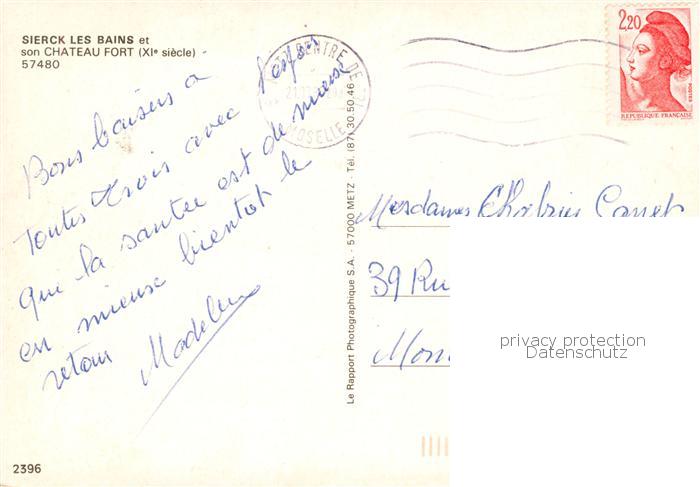 SIERCK LES BAINS et
son CHATEAU FORT (XIe siècle)
57480
Bons baisers a
toutes trois avec l'espoir
que la santée est de mieux
en mieux bientot le
retour Madeleine
CENTRE DE
MOSELLE
2,20
POSTES
REPUBLIQUE FRANÇAISE
Le Rapport Photographique S.A. - 57000 METZ - Tél. (87) 30.50.46
Mesdames Chabrier Canet
39 Ru
Mon
privacy protection
Datenschutz
2396